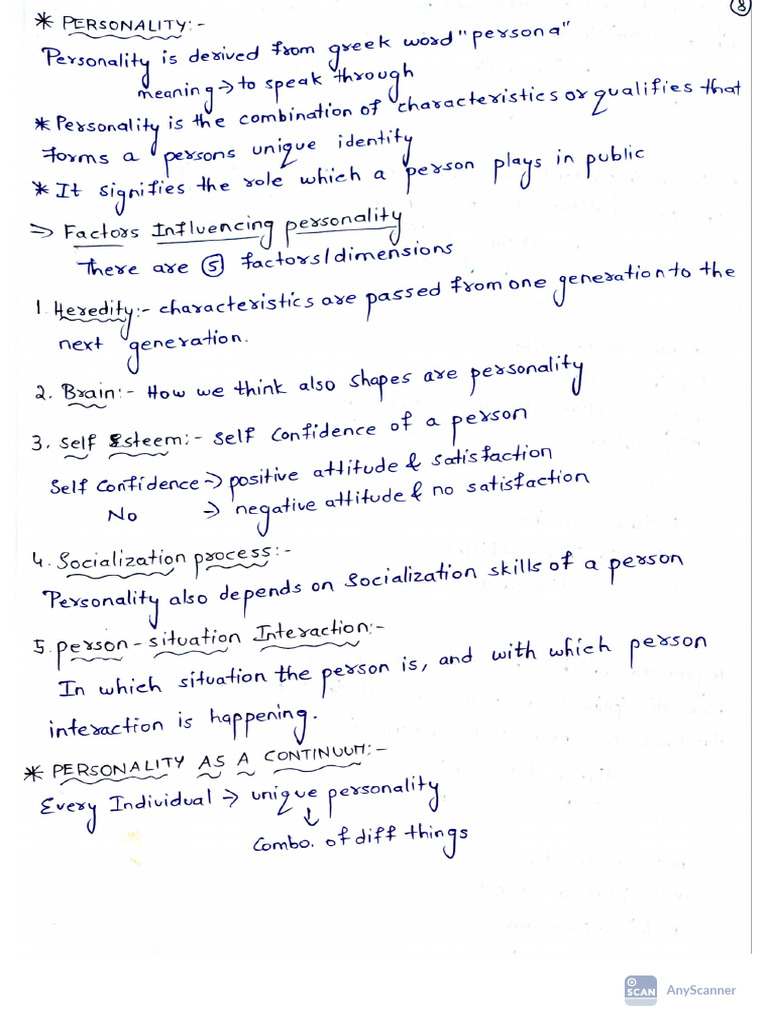 8
* PERSONALITY:-
Personality is derived from greek word "persona"
meaning → to speak through
* Personality is the combination of characteristics or qualifies that
forms a persons unique identity
* It signifies the role which a person plays in public
⇒ Factors Influencing personality
There are 5 factors/dimensions
1. Heredity:- characteristics are passed from one generation to the
next generation.
2. Brain:- How we think also shapes are personality
3. Self Esteem:- Self Confidence of a person
Self Confidence → positive attitude & satisfaction
No → negative attitude & no satisfaction
4. Socialization process:-
Personality also depends on Socialization skills of a person
5. person - situation Interaction:-
In which situation the person is, and with which person
interaction is happening.
* PERSONALITY AS A CONTINUUM:-
Every Individual → unique personality
↓
Combo. of diff things
SCAN AnyScanner